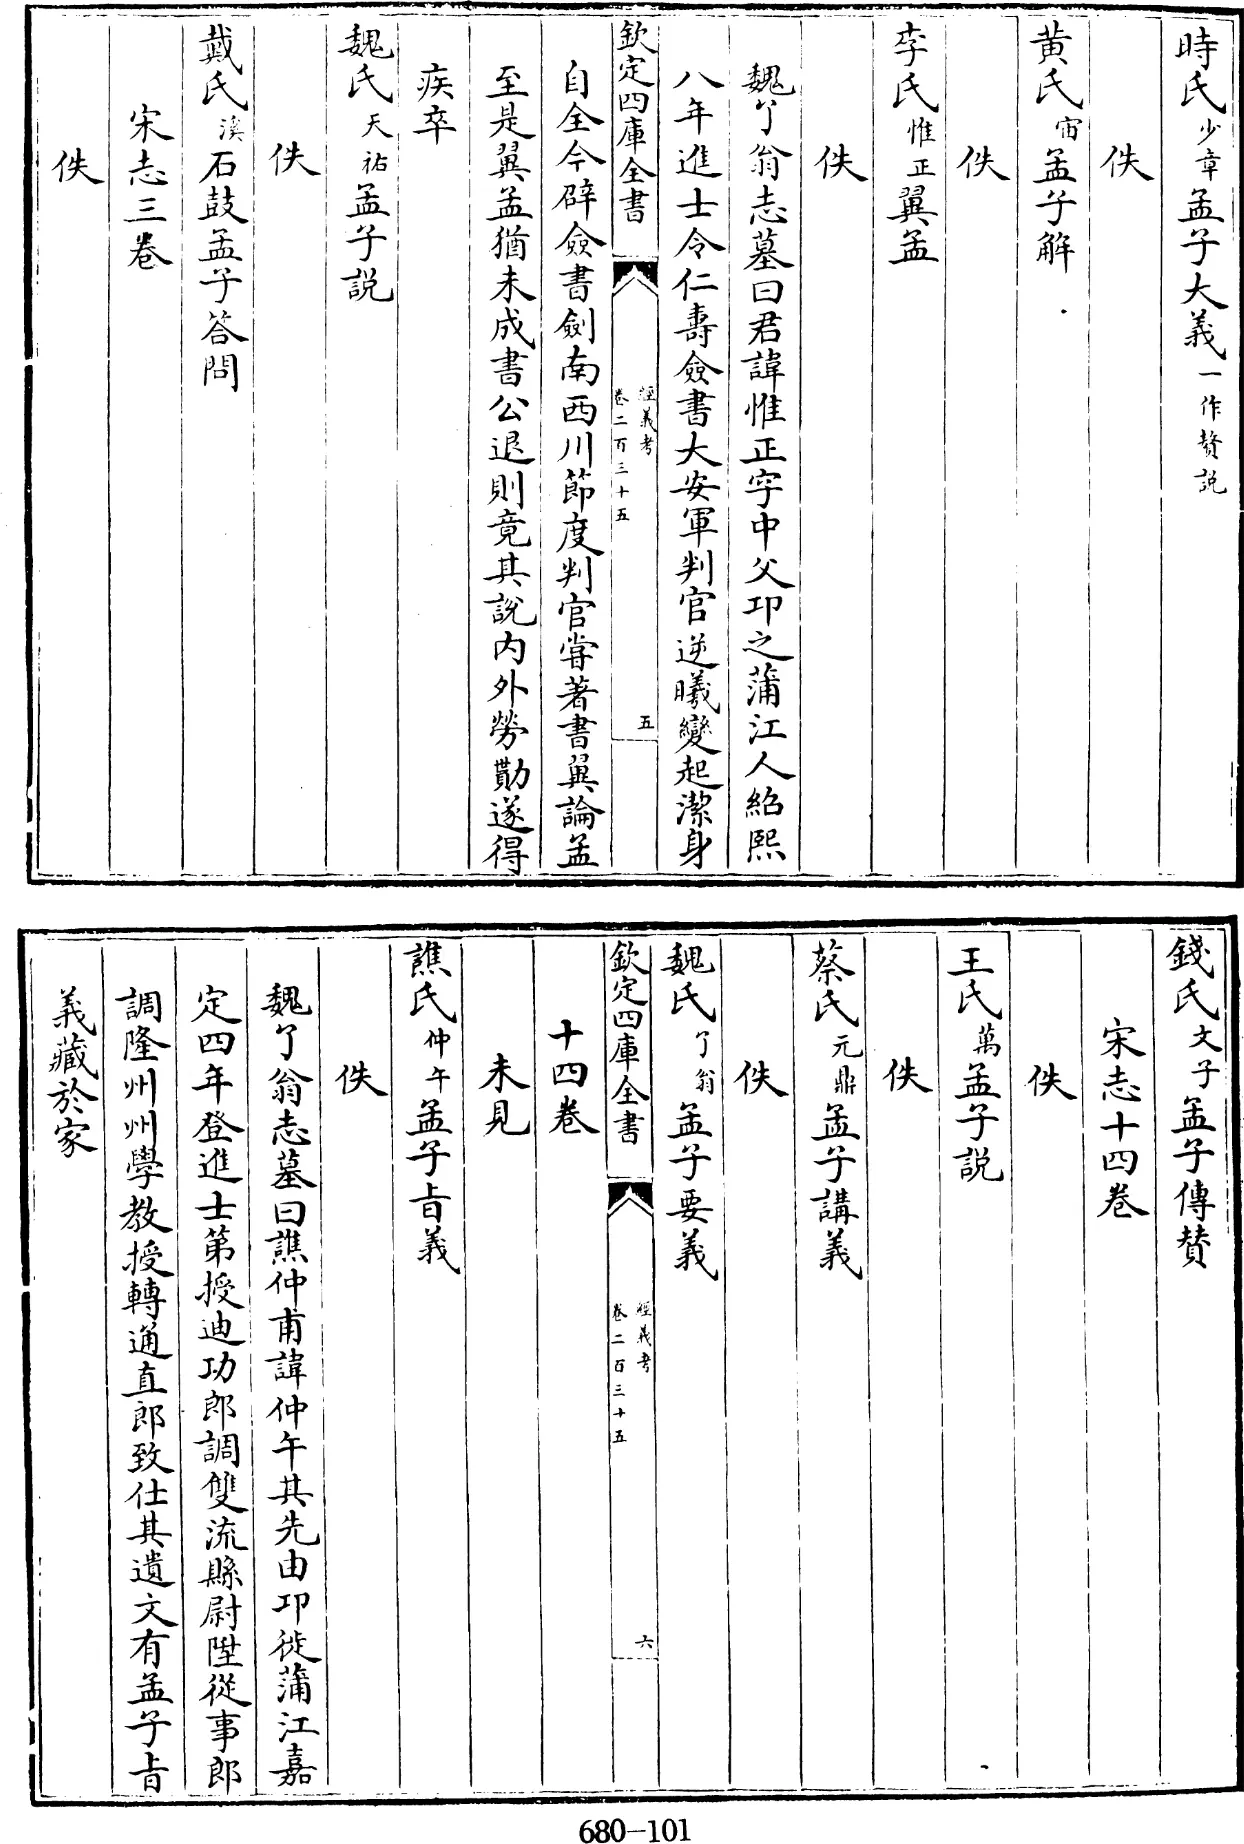 時氏少章孟子大義一作贅説
佚
黄氏宙孟子解
佚
李氏惟正翼孟
佚
魏了翁志墓曰君諱惟正字中父邛之蒲江人紹熙
八年進士令仁壽僉書大安軍判官逆曦變起潔身
欽定四庫全書
經義考
卷二百三十五
五
自全今辟僉書劍南西川節度判官嘗著書翼論孟
至是翼孟猶未成書公退則竟其說内外勞勩遂得
疾卒
魏氏天祐孟子説
佚
戴氏溪石鼓孟子答問
宋志三卷
佚
錢氏文子孟子傳贊
宋志十四卷
佚
王氏萬孟子説
佚
蔡氏元鼎孟子講義
佚
魏氏了翁孟子要義
欽定四庫全書
經義考
卷二百三十五
六
十四卷
未見
譙氏仲午孟子㫖義
佚
魏了翁志墓曰譙仲甫諱仲午其先由邛徙蒲江嘉
定四年登進士第授迪功郎調雙流縣尉陞從事郎
調隆州州學教授轉通直郎致仕其遺文有孟子㫖
義藏於家
680-101